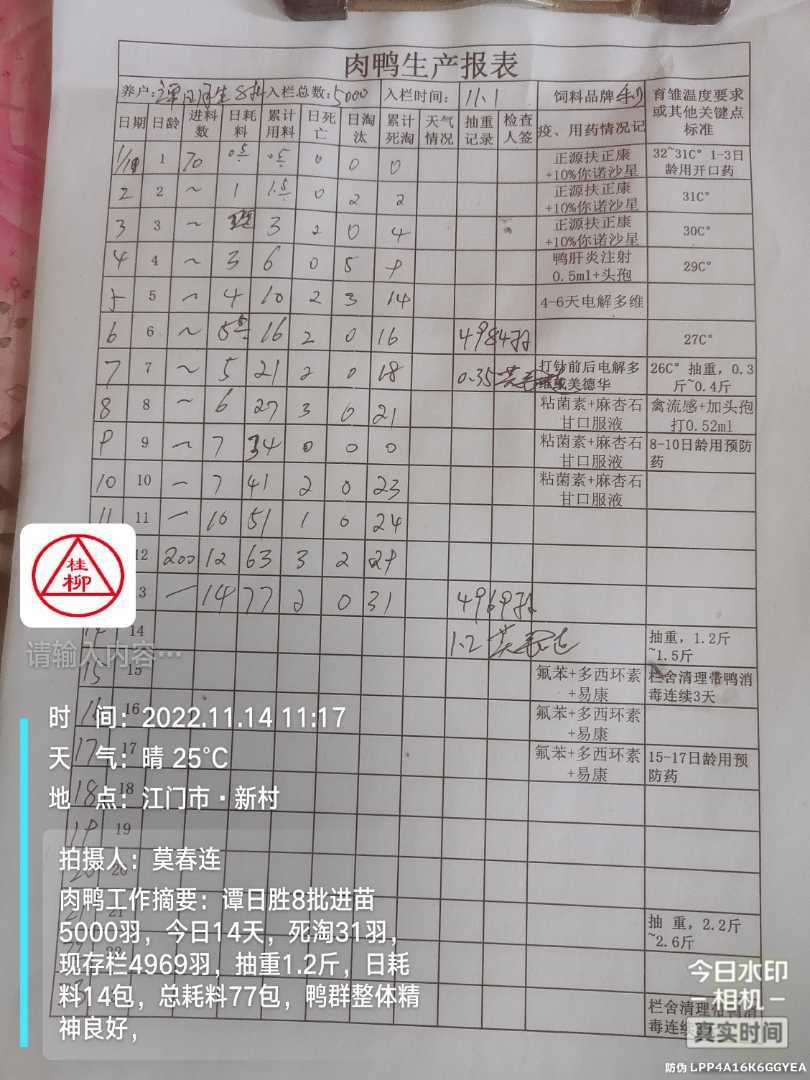 肉鸭生产报表
养户:谭日胜8批 入栏总数:5000 入栏时间: 11.1 饲料品牌 育雏温度要求或其他关键点标准
日期 日龄 进料数 日耗料 累计用料 日死亡 日淘汰 累计死淘 天气情况 抽重记录 检查人签 疫、用药情况记
1 70 0.5 0.5 0 0 0 正源扶正康+10%你诺沙星 32~31C° 1-3日龄用开口药
2 2 ~ 1 1.5 0 2 2 正源扶正康+10%你诺沙星 31C°
3 3 ~ 3 2 0 4 正源扶正康+10%你诺沙星 30C°
4 4 ~ 3 6 0 5 9 鸭肝炎注射0.5ml+头孢 29C°
5 5 ~ 4 10 2 3 14 4-6天电解多维
6 6 ~ 5.5 16 2 0 16 4984羽 27C°
7 7 ~ 5 21 2 0 18 0.35 打针前后电解多 美德华 26C° 抽重，0.3斤~0.4斤
8 8 ~ 6 27 3 0 21 粘菌素+麻杏石甘口服液 禽流感+加头孢打0.52ml
9 9 ~ 7 34 0 0 0 粘菌素+麻杏石甘口服液 8-10日龄用预防药
10 10 ~ 7 41 2 0 23 粘菌素+麻杏石甘口服液
11 11 — 10 51 1 0 24
12 200 12 63 3 2 29
3 — 14 77 2 0 31 4969羽
14 14 1.2 莫春连 抽重，1.2斤~1.5斤
15 15 氟苯+多西环素+易康 栏舍清理带鸭消毒连续3天
16 16 氟苯+多西环素+易康
17 17 氟苯+多西环素+易康 15-17日龄用预防药
18 18
19 19
20 20
21 21 抽 重，2.2斤~2.6斤
22 22
栏舍清理带鸭消毒连续
桂柳
请输入内容…
时 间：2022.11.14 11:17
天 气：晴 25℃
地 点：江门市·新村
拍摄人：莫春连
肉鸭工作摘要：谭日胜8批进苗
5000羽，今日14天，死淘31羽，
现存栏4969羽，抽重1.2斤，日耗
料14包，总耗料77包，鸭群整体精
神良好，
今日水印
相机
真实时间
防伪 LPP4A16K6GGYEA